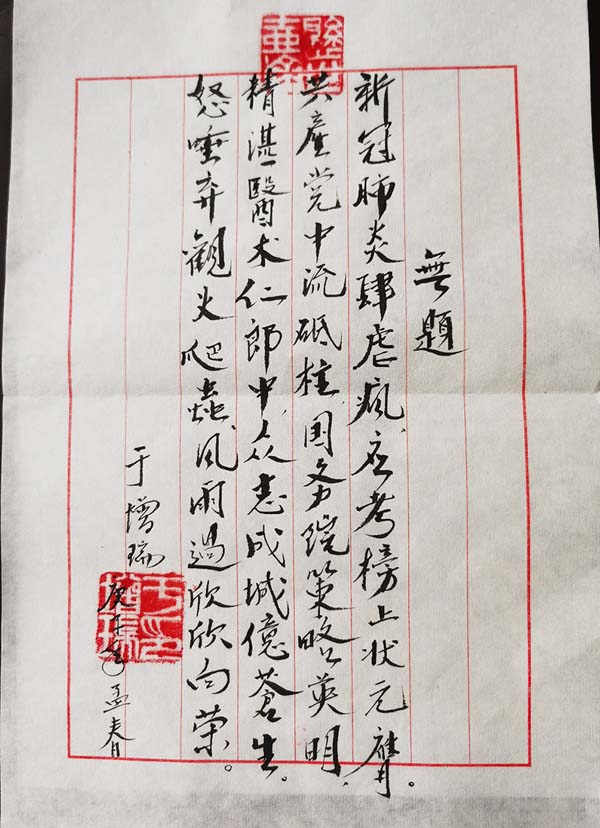 無題
新冠肺炎肆虐瘋,应考榜上状元膺。
共產党中流砥柱,国务院策略英明,
精湛醫术仁郎中,众志成城億蒼生。
怒唾弃觀火爬蟲,风雨過欣欣向荣。
于增瑞
庚子年孟春